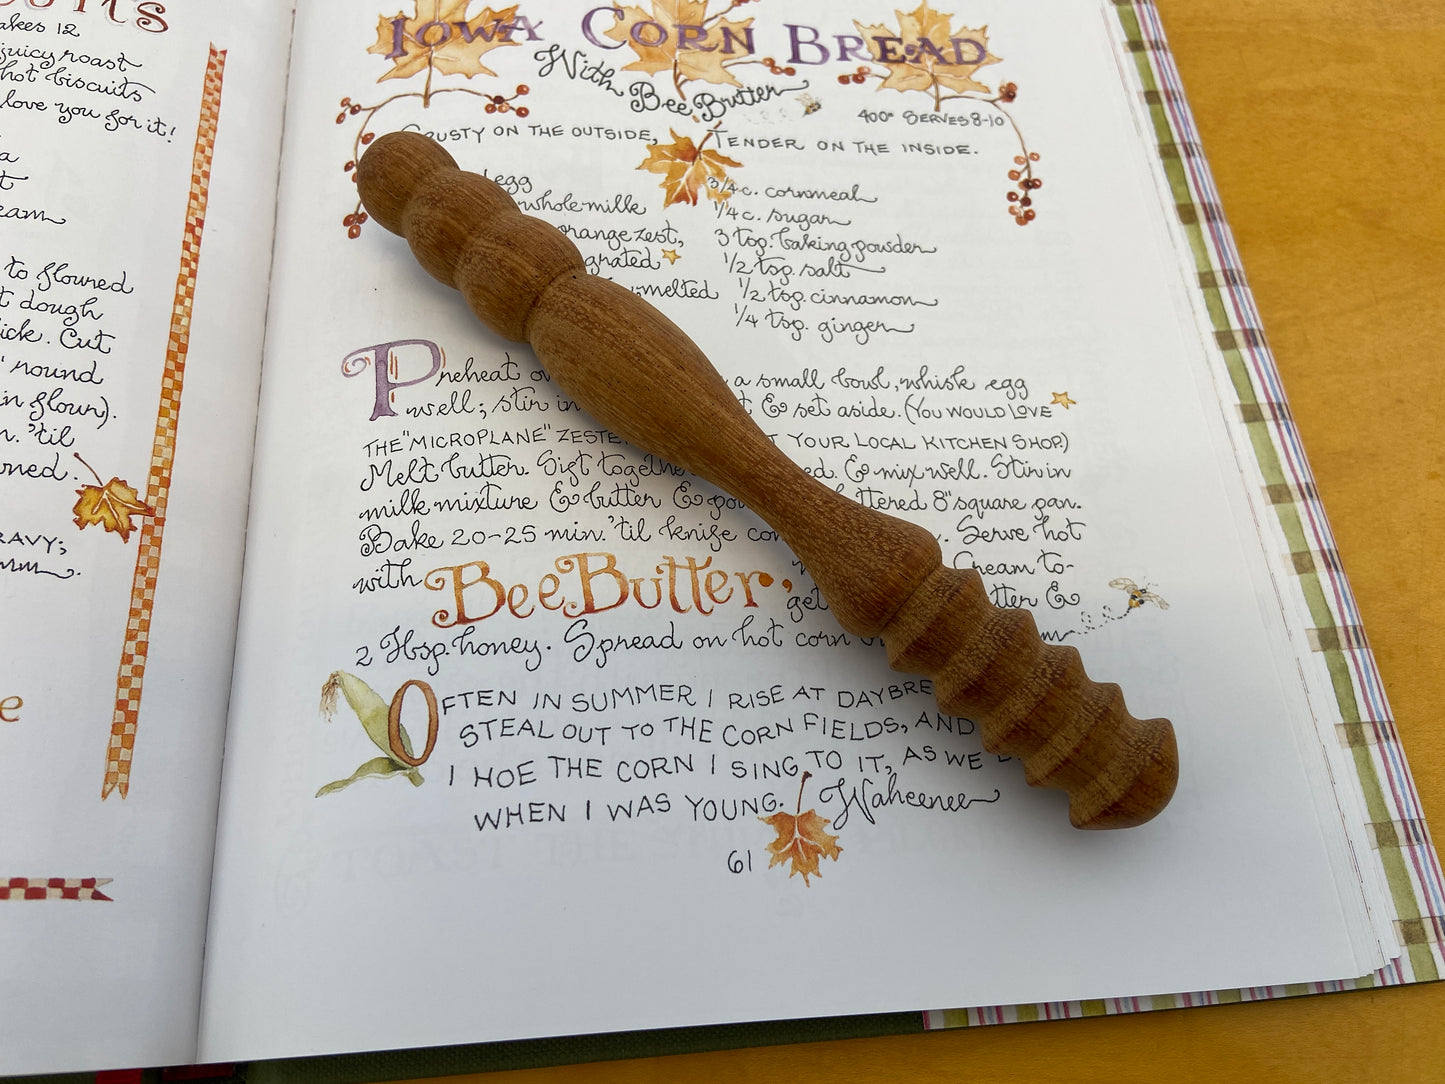 akes 12
juicy roast
hot biscuits
love you for it!
a
t
eam
to floured
t dough
ick. Cut
" round
in flour).
n. 'til
wned.
RAVY;
mm.
e
IOWA CORN BREAD
With Bee Butter
400° SERVES 8-10
CRUSTY ON THE OUTSIDE, TENDER ON THE INSIDE.
egg
whole milk
orange zest,
grated
melted
3/4 c. cornmeal
1/4 c. sugar
3 tsp. baking powder
1/2 tsp. salt
1/2 tsp. cinnamon
1/4 tsp. ginger
Preheat ov a small bowl, whisk egg
well; stir in t & set aside. (YOU WOULD LOVE
THE "MICROPLANE" ZESTE T YOUR LOCAL KITCHEN SHOP.)
Melt butter. Sift togethe ed. & mix well. Stir in
milk mixture & butter & pou uttered 8" square pan.
Bake 20-25 min. 'til knife co . Serve hot
with Bee Butter; Cream to-
get tter &
2 Tbsp. honey. Spread on hot corn b m
OFTEN IN SUMMER I RISE AT DAYBRE
STEAL OUT TO THE CORN FIELDS, AND
I HOE THE CORN I SING TO IT, AS WE D
WHEN I WAS YOUNG. Waheenee
61